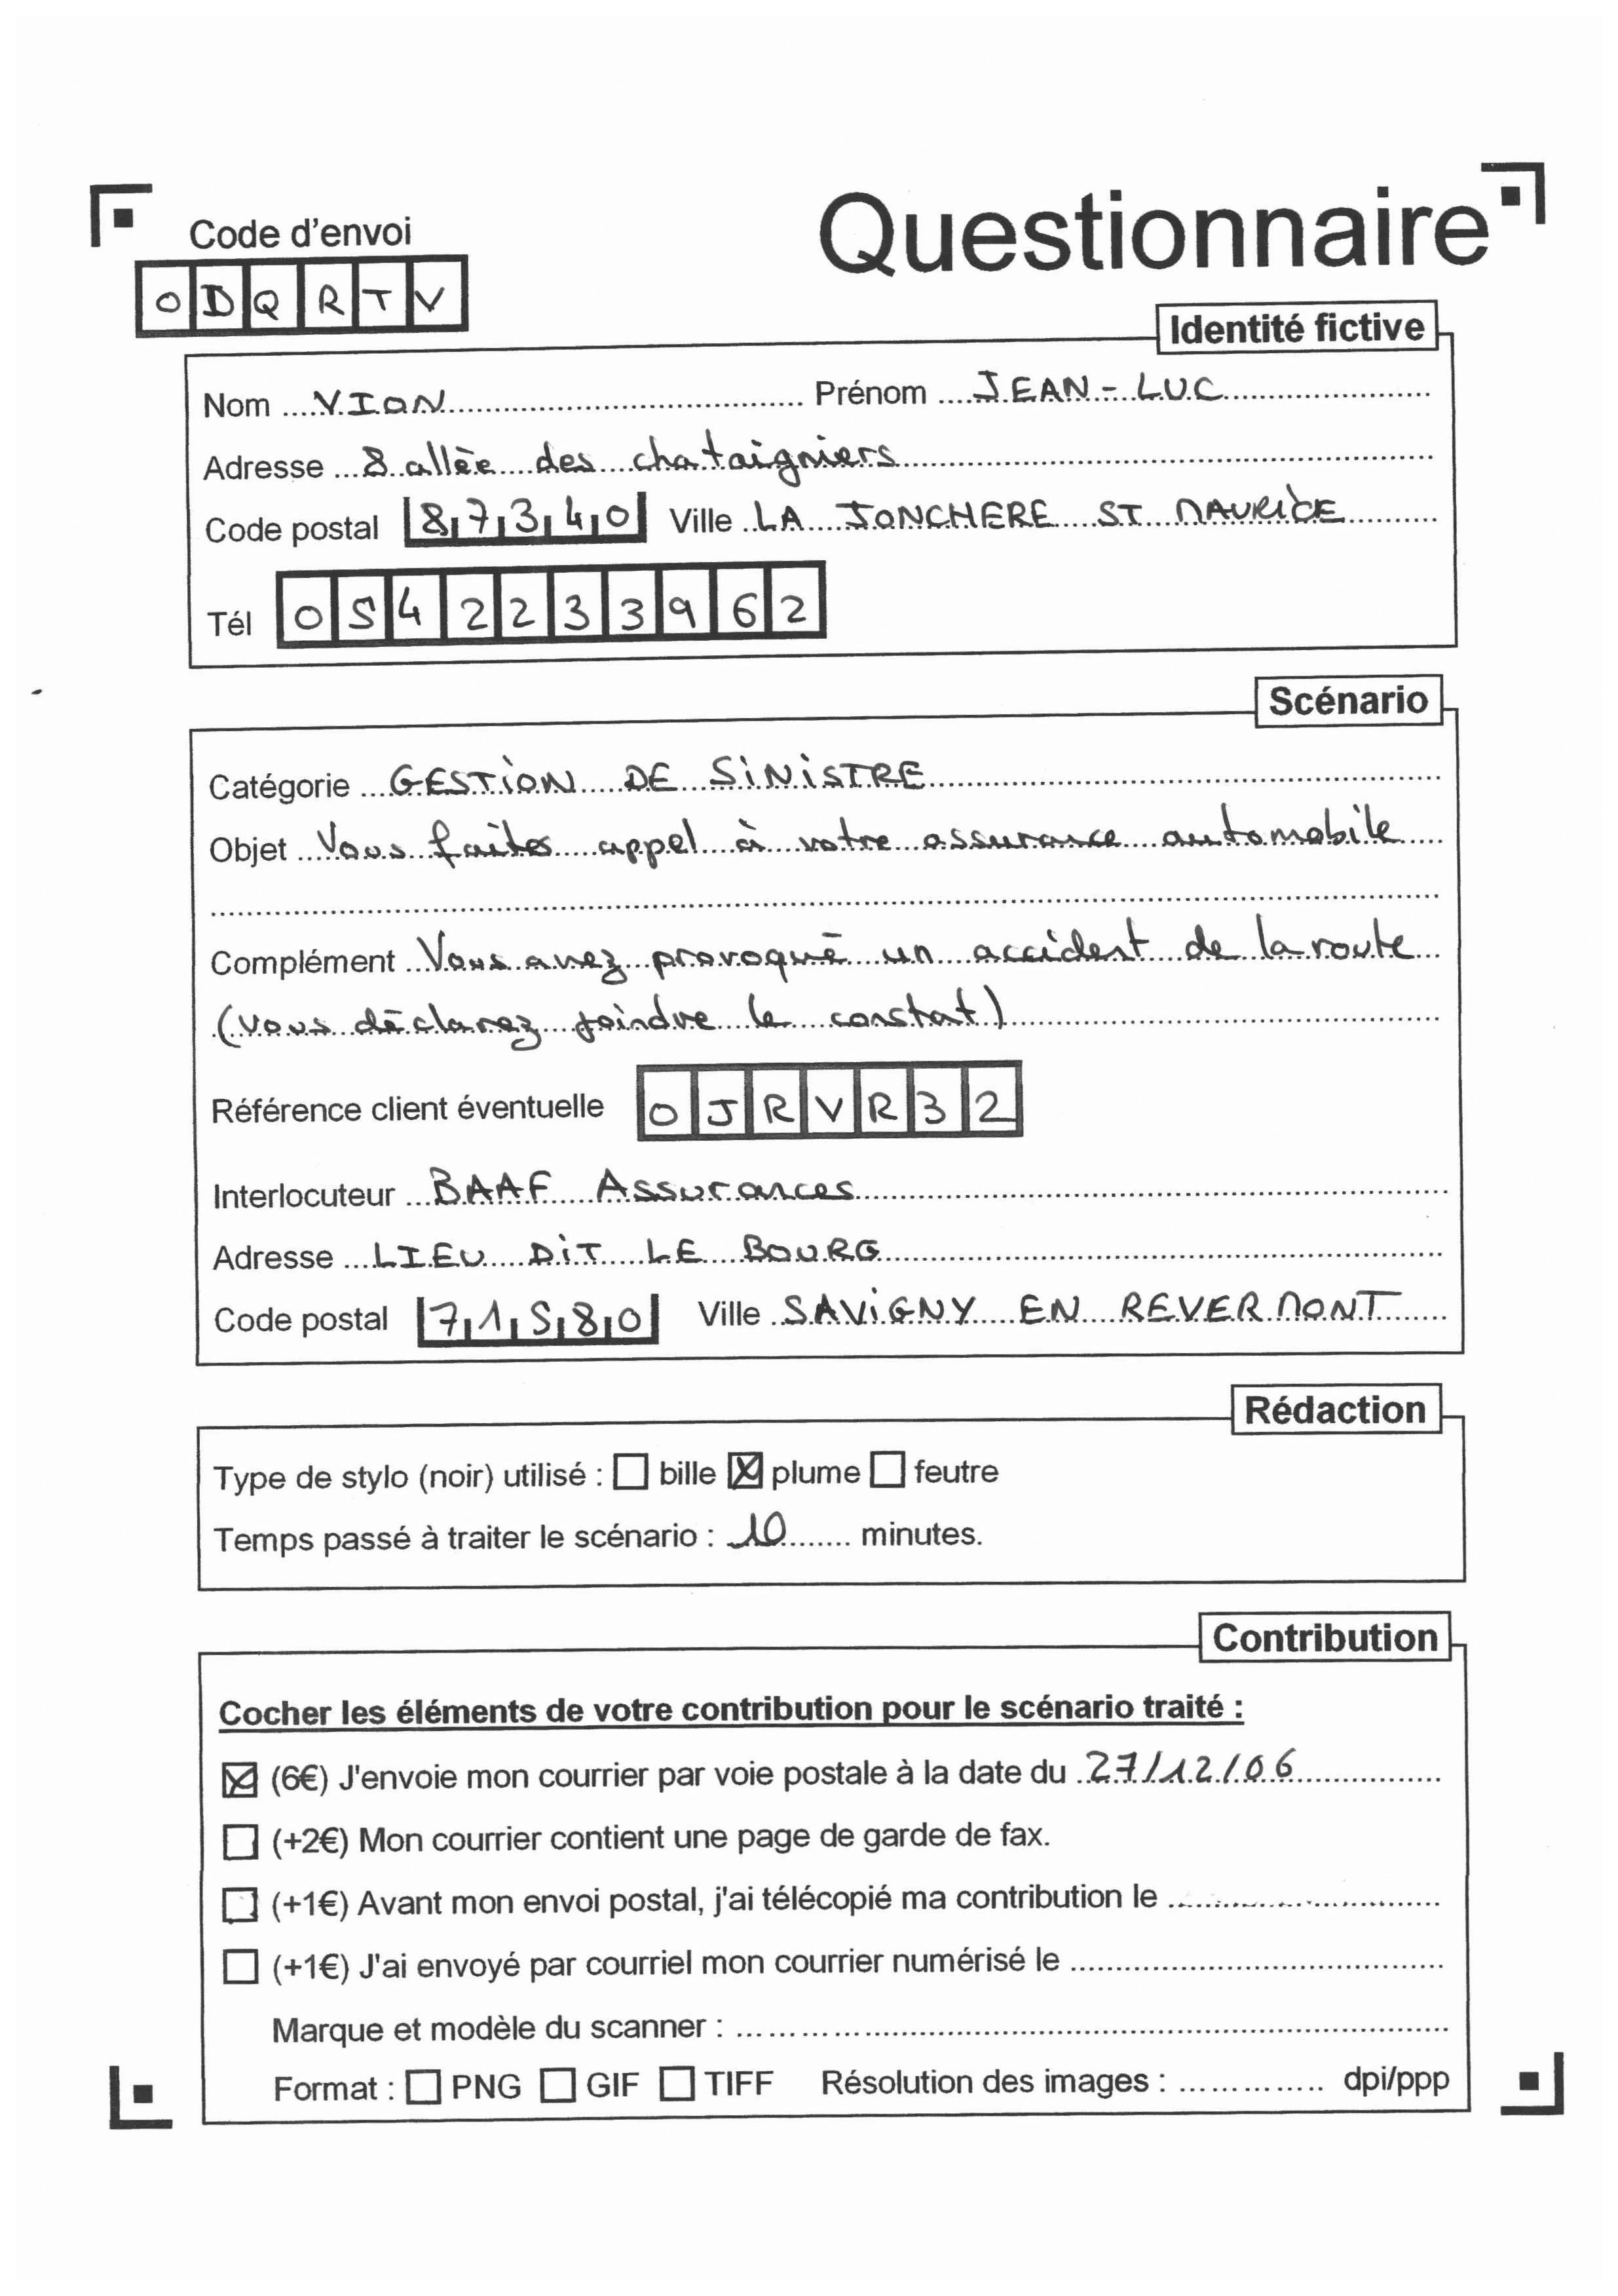 Questionnaire
Code d'envoi
ODQRTV
Identité fictive
Nom VION Prénom JEAN-LUC
Adresse 8 allée des chataigniers
Code postal 87340 Ville LA JONCHERE ST MAURICE
Tél 0542233962
Scénario
Catégorie GESTION DE SINISTRE
Objet Vous faites appel à votre assurance automobile
Complément Vous avez provoqué un accident de la route
(vous déclarez joindre le constat)
Référence client éventuelle OJRVR32
Interlocuteur BAAF Assurances
Adresse LIEU DIT LE BOURG
Code postal 71580 Ville SAVIGNY EN REVERMONT
Rédaction
Type de stylo (noir) utilisé : ☐ bille ☒ plume ☐ feutre
Temps passé à traiter le scénario : 10 minutes.
Contribution
Cocher les éléments de votre contribution pour le scénario traité :
☒ (6€) J'envoie mon courrier par voie postale à la date du 27/12/06
☐ (+2€) Mon courrier contient une page de garde de fax.
☐ (+1€) Avant mon envoi postal, j'ai télécopié ma contribution le
☐ (+1€) J'ai envoyé par courriel mon courrier numérisé le
Marque et modèle du scanner :
Format : ☐ PNG ☐ GIF ☐ TIFF Résolution des images : dpi/ppp